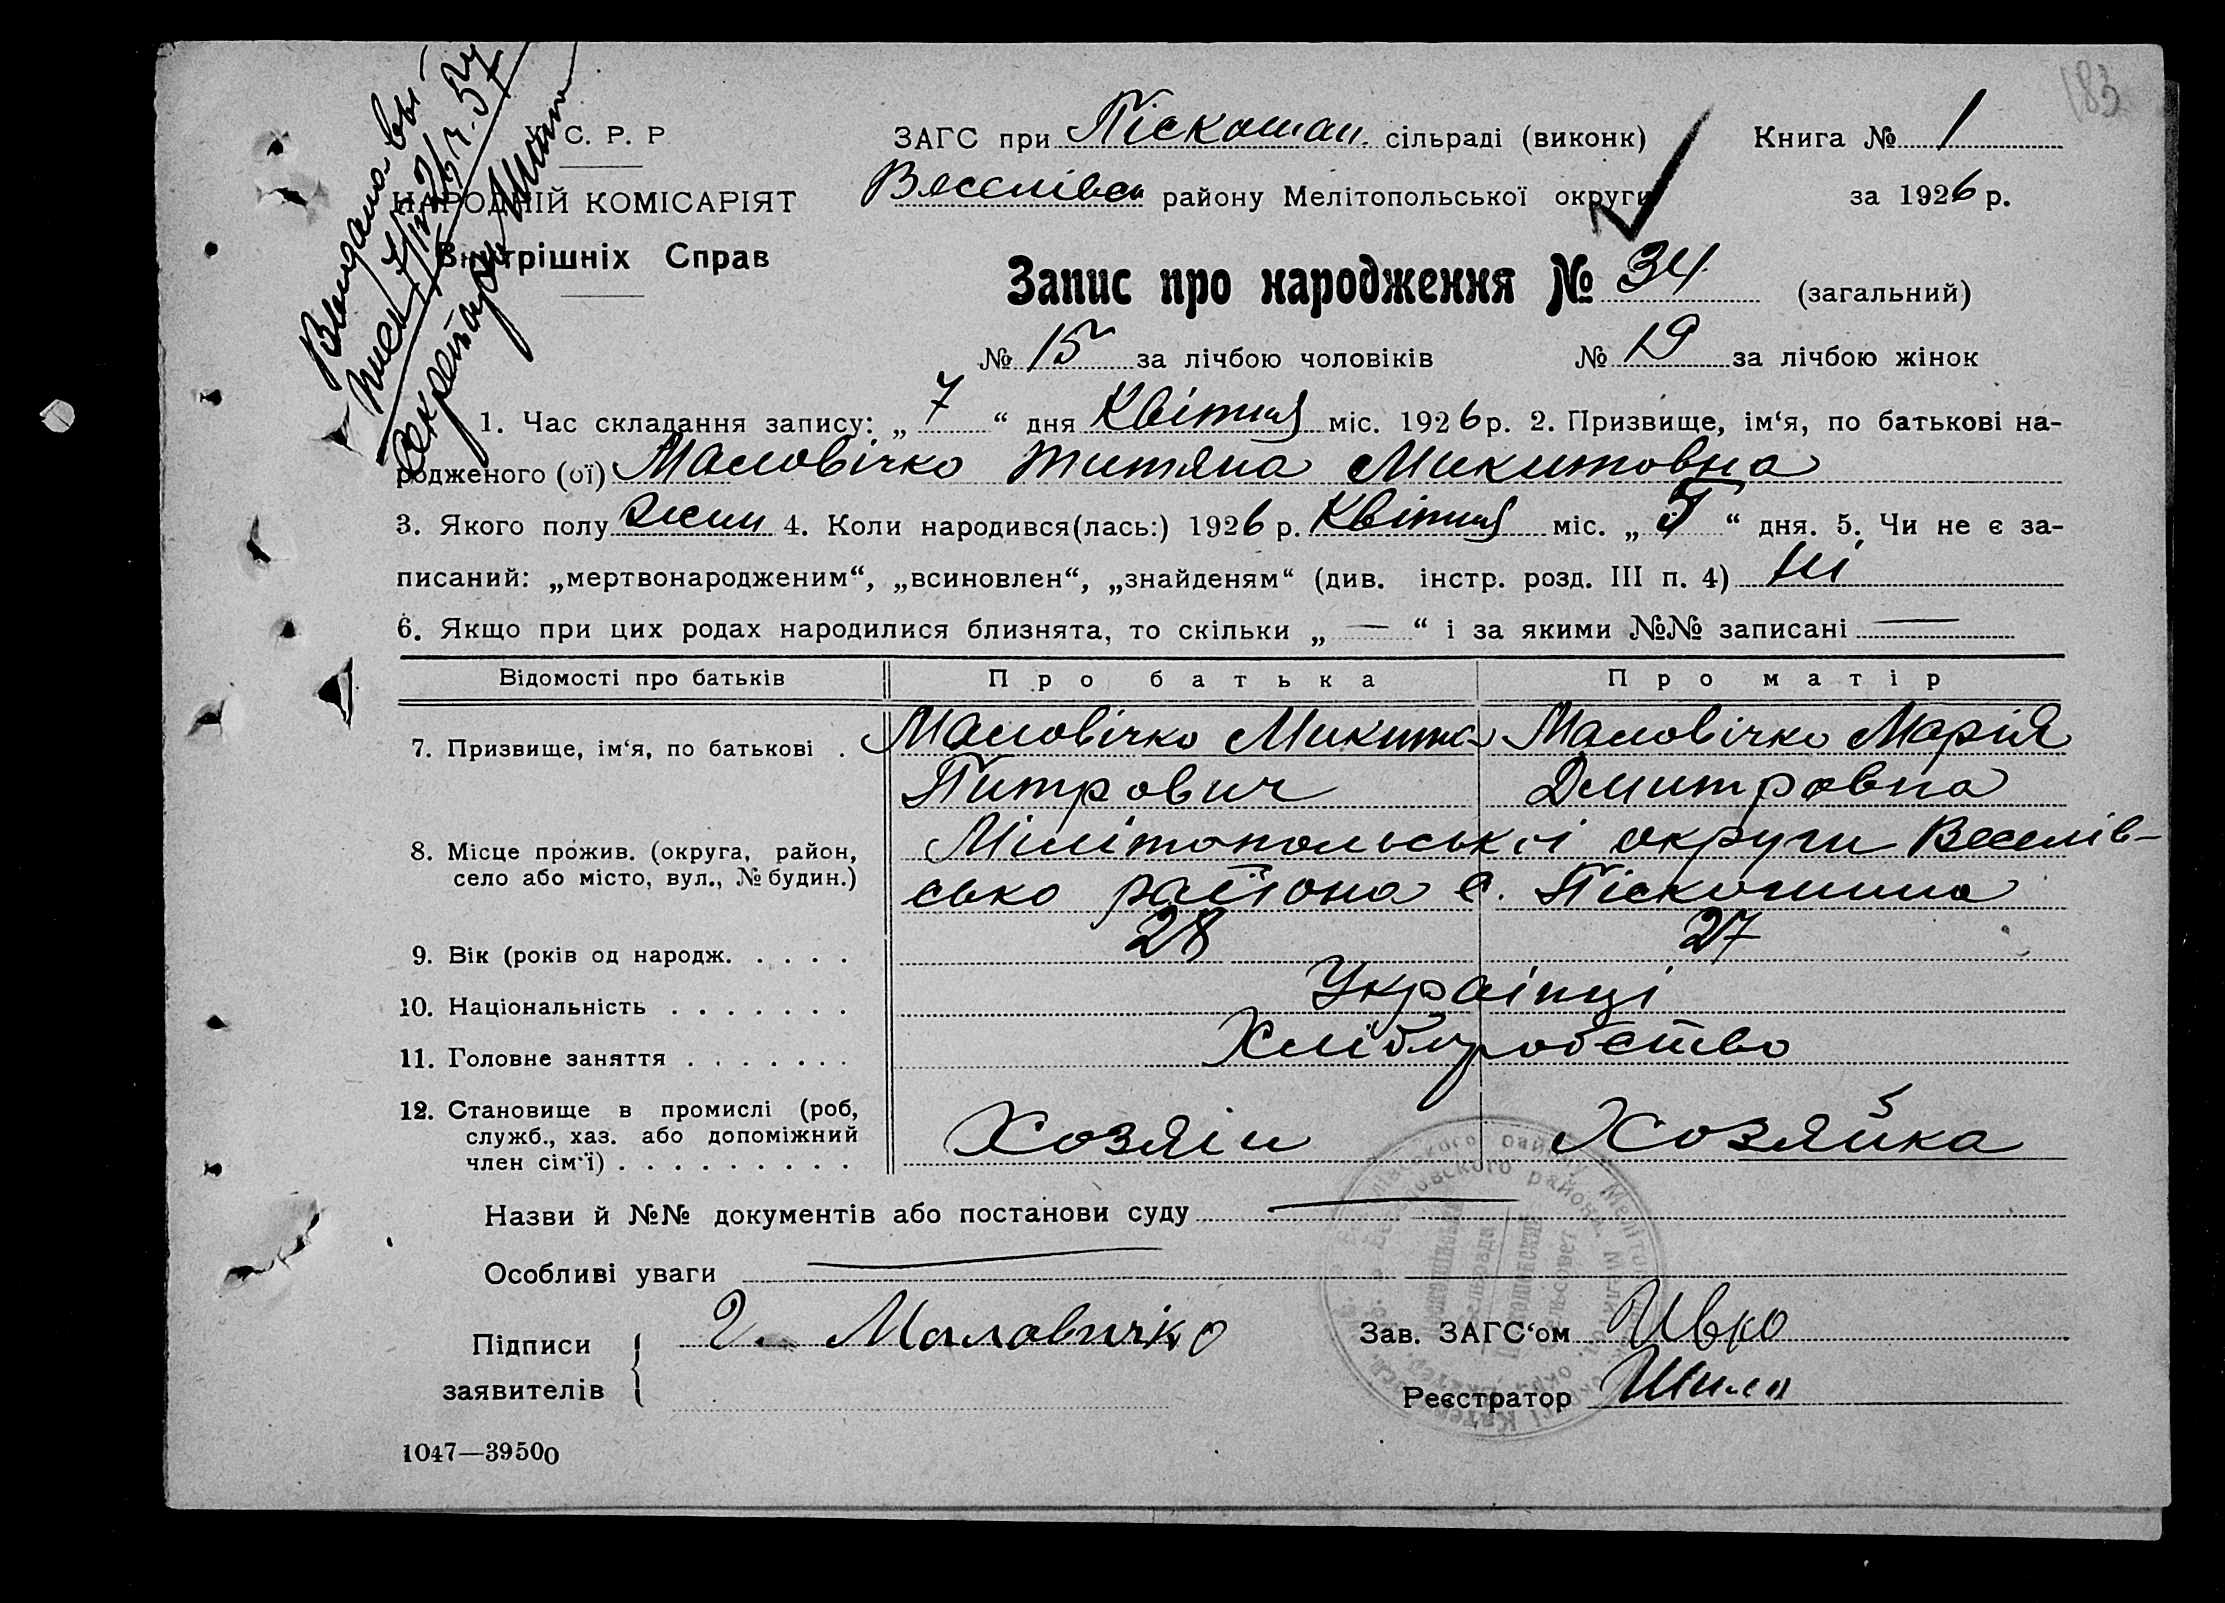 183
Видана вы-
С. Р. Р.
НАРОДНІЙ КОМІСАРІЯТ
Внутрішніх Справ
ЗАГС при Піскошан. сільраді (виконк) Книга № 1
Веселівск району Мелітопольської округи за 1926 р.
Запис про народження № 34 (загальний)
№ 15 за лічбою чоловіків № 19 за лічбою жінок
1. Час складання запису: „ 7 “ дня Квітня міс. 1926 р. 2. Призвище, ім‘я, по батькові на-
родженого (ої) Маловічко Титяна Микитовна
3. Якого полу жіни 4. Коли народився(лась:) 1926 р. Квітня міс. „ 5 “ дня. 5. Чи не є за-
писаний: „мертвонародженим“, „всиновлен“, „знайденям“ (див. інстр. розд. III п. 4) Ні
6. Якщо при цих родах народилися близнята, то скільки „ — “ і за якими №№ записані —
Відомості про батьків Про батька Про матір
7. Призвище, ім‘я, по батькові . Маловічко Микита Маловічко Марія
Питрович Дмитровна
8. Місце прожив. (округа, район, Мілітопольської округи Веселів-
село або місто, вул., № будин.) сько району с. Піскошина
9. Вік (років од народж. . . . . 28 27
10. Національність . . . . . . . Українці
11. Головне заняття . . . . . . . Хліборобство
12. Становище в промислі (роб,
служб., хаз. або допоміжний Хозяін Хозяйка
член сім‘ї) . . . . . . . . .
Назви й №№ документів або постанови суду —
Особливі уваги —
Підписи Г. Маловичко Зав. ЗАГС‘ом Ивко
заявителів Реєстратор Шило
1047—39500